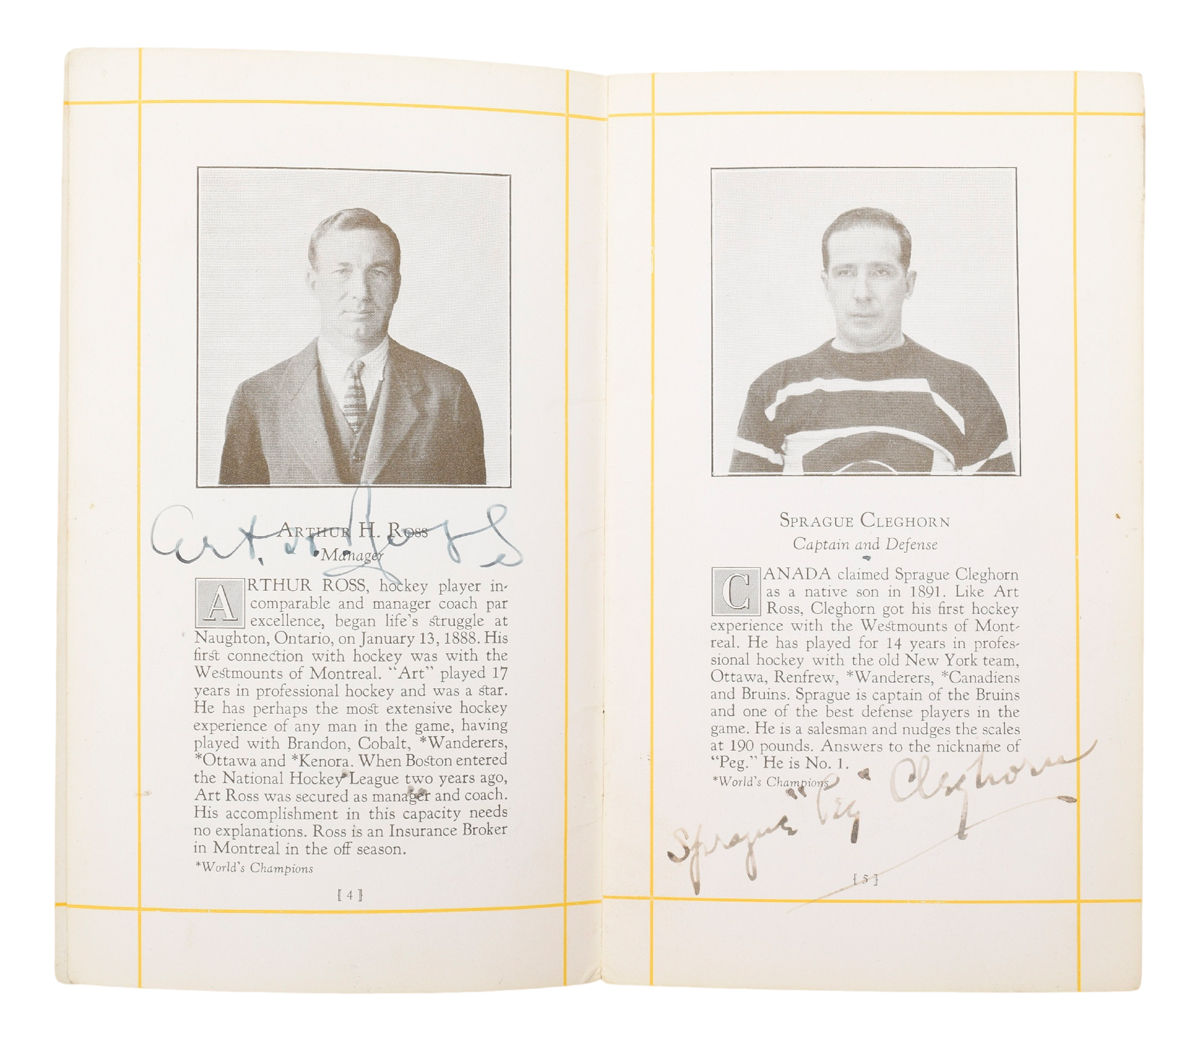 ARTHUR H. ROSS
Art. H. Ross
Manager
ARTHUR ROSS, hockey player in-
comparable and manager coach par
excellence, began life's struggle at
Naughton, Ontario, on January 13, 1888. His
first connection with hockey was with the
Westmounts of Montreal. "Art" played 17
years in professional hockey and was a star.
He has perhaps the most extensive hockey
experience of any man in the game, having
played with Brandon, Cobalt, *Wanderers,
*Ottawa and *Kenora. When Boston entered
the National Hockey League two years ago,
Art Ross was secured as manager and coach.
His accomplishment in this capacity needs
no explanations. Ross is an Insurance Broker
in Montreal in the off season.
*World's Champions
[4]
SPRAGUE CLEGHORN
Captain and Defense
CANADA claimed Sprague Cleghorn
as a native son in 1891. Like Art
Ross, Cleghorn got his first hockey
experience with the Westmounts of Mont-
real. He has played for 14 years in profes-
sional hockey with the old New York team,
Ottawa, Renfrew, *Wanderers, *Canadiens
and Bruins. Sprague is captain of the Bruins
and one of the best defense players in the
game. He is a salesman and nudges the scales
at 190 pounds. Answers to the nickname of
"Peg." He is No. 1.
*World's Champions
Sprague "Peg" Cleghorn
[5]